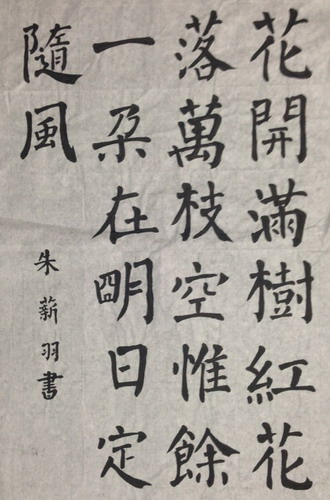 花開滿樹紅花
落萬枝空惟餘
一朶在明日定
隨風
朱薪羽書